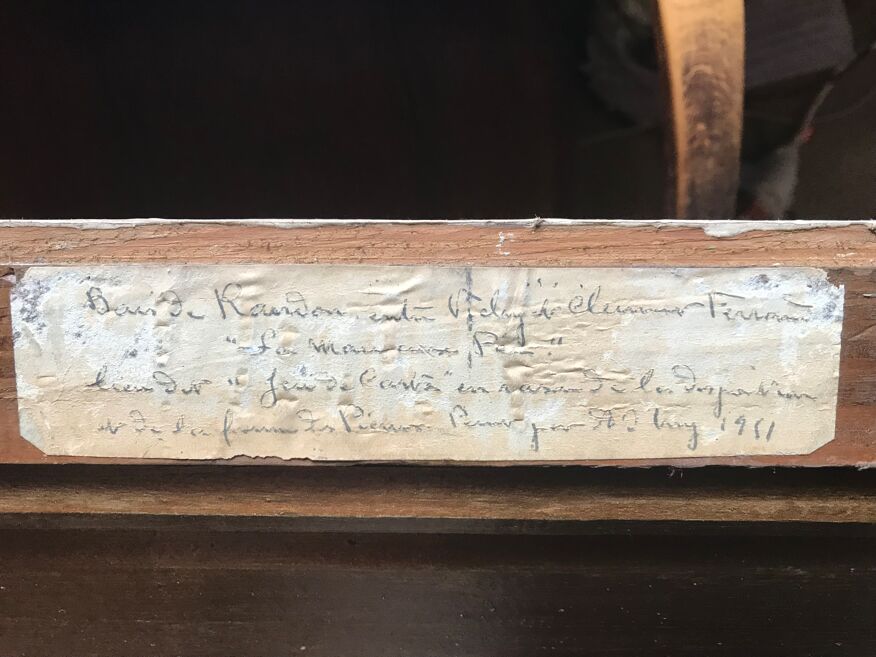 Bois de Randon entre Vichy et Clermont Ferrand
"La mauvaise
lieu dit "Jeu de Cartes" en raison de la disposition
et de la forme des Pierres. par 1951